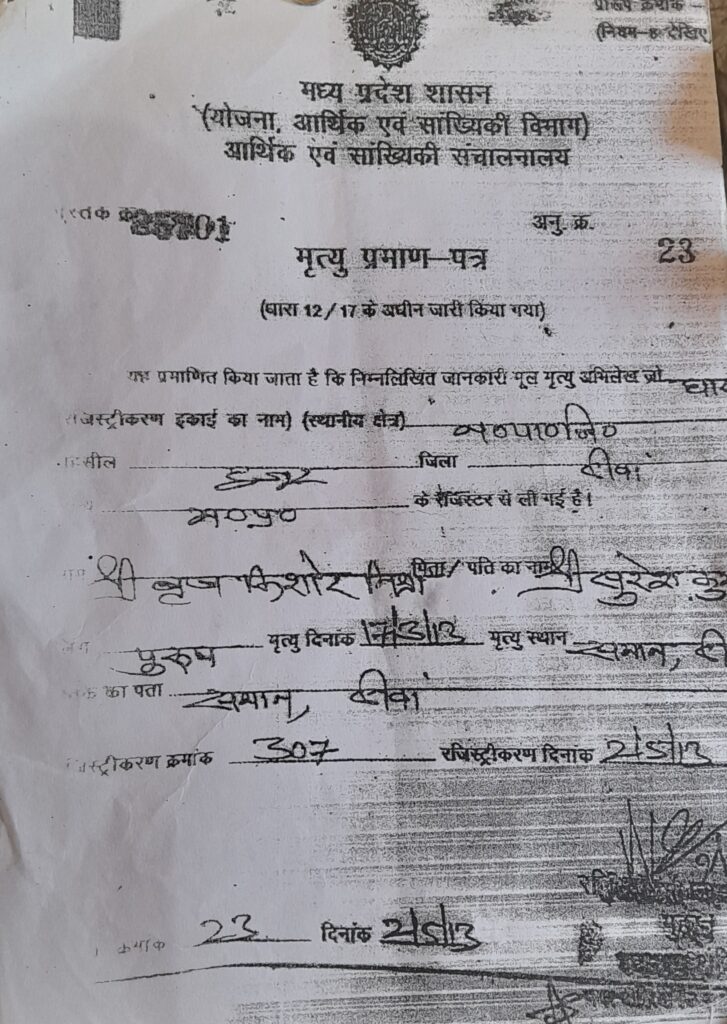 प्रारूप क्रमांक –
(नियम-8 देखिए
मध्य प्रदेश शासन
(योजना, आर्थिक एवं सांख्यिकी विभाग)
आर्थिक एवं सांख्यिकी संचालनालय
पुस्तक क्र अनु. क्र. 23
मृत्यु प्रमाण–पत्र
(धारा 12/17 के अधीन जारी किया गया)
यह प्रमाणित किया जाता है कि निम्नलिखित जानकारी मूल मृत्यु अभिलेख जो
रजिस्ट्रीकरण इकाई का नाम) (स्थानीय क्षेत्र) न०पा०नि०
तहसील हुजूर जिला रीवां
म०प्र० के रजिस्टर से ली गई है।
श्री बृज किशोर मिश्रा पिता/पति का नाम श्री सुरेश
पुरूष मृत्यु दिनांक 17/3/13 मृत्यु स्थान समान,
का पता समान, रीवां
रजिस्ट्रीकरण क्रमांक 307 रजिस्ट्रीकरण दिनांक 2/5/13
क्रमांक 23 दिनांक 2/5/13